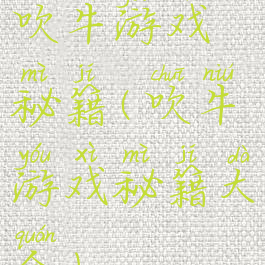 吹牛游戏
mì jí chuī niú
秘籍(吹牛
yóu xì mì jí dà
游戏秘籍大
quán
全)